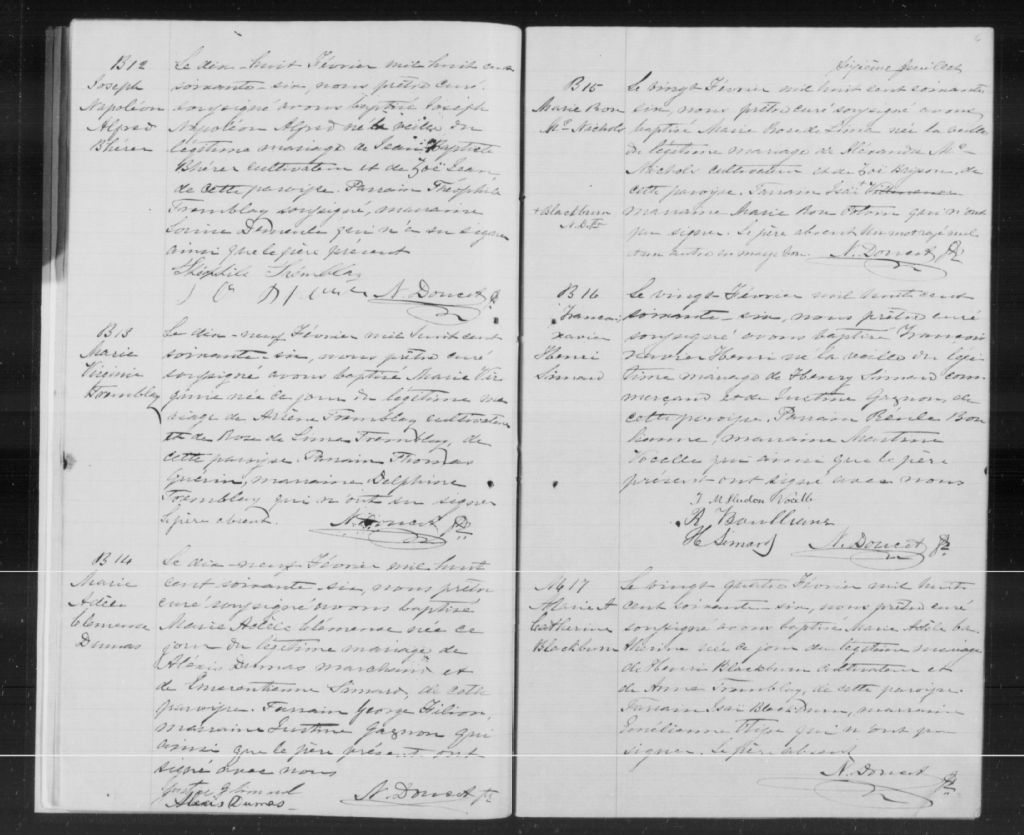 B12
Joseph
Napoléon
Alfred
Bhérer
Le dix-huit Février mil huit cent
soixante-six, nous prêtre curé
soussigné avons baptisé Joseph
Napoléon Alfred né la veille du
légitime mariage de Jean Baptiste
Bhérer cultivateur et de Zoë Jean,
de cette paroisse. Parrain Théophile
Tremblay soussigné, marraine
Louise Desmeules qui n'a su signer
ainsi que le père présent
Théophile Tremblay
N. Doucet Ptr
B13
Marie
Virginie
Tremblay
Le dix-neuf Février mil huit cent
soixante-six, nous prêtre curé
soussigné avons baptisé Marie Vir-
ginie née ce jour du légitime ma
riage de Tremblay cultivateur
et de Rose de Lima Tremblay, de
cette paroisse. Parrain Thomas
Guérin, marraine Delphine
Tremblay qui n'ont su signer
le père absent.
N. Doucet Ptr
B14
Marie
Adèle
Clémence
Dumas
Le dix-neuf Février mil huit
cent soixante-six, nous prêtre
curé soussigné avons baptisé
Marie Adèle Clémence née ce
jour du légitime mariage de
Alexis Dumas marchand et
de Emerentienne Simard, de cette
paroisse. Parrain George Filion,
marraine Justine Gagnon qui
ainsi que le père présent ont
signé avec nous
Alexis Dumas
N. Doucet Ptr
Sixième feuillet
B15
Marie Rose
Mc Nichols
+ Blackburn
N. Dt
Le vingt Février mil huit cent soixante
six, nous prêtre curé soussigné avons
baptisé Marie Rose de Lima née la veille
du légitime mariage de Mc
Nichols cultivateur et de Zoë Brisson, de
cette paroisse. Parrain
marraine Marie Rose qui n'ont
pu signer. Le père absent Un mot rayé nul
un autre en marge bon. N. Doucet Ptr
B16
Francois
Xavier
Henri
Simard
Le vingt Février mil huit cent
soixante-six, nous prêtre curé
soussigné avons baptisé Francois
Xavier Henri né la veille du légi-
time mariage de Henry Simard com-
merçant et de Justine Gagnon, de
cette paroisse. Parrain Boul
hanne, marraine Martine
Vocelle qui ainsi que le père
présent ont signé avec nous
J M Hudon Vocelle
R Boulliane
H Simard
N. Doucet Ptr
B17
Marie A
Catherine
Blackburn
Le vingt quatre Février mil huit
cent soixante-six, nous prêtre curé
soussigné avons baptisé Marie Adèle Ca
thérine née ce jour du légitime mariage
de Henri Blackburn cultivateur et
de Anna Tremblay, de cette paroisse.
Parrain Blackburn, marraine
qui n'ont pu
signer. Le père absent
N. Doucet
Ptr